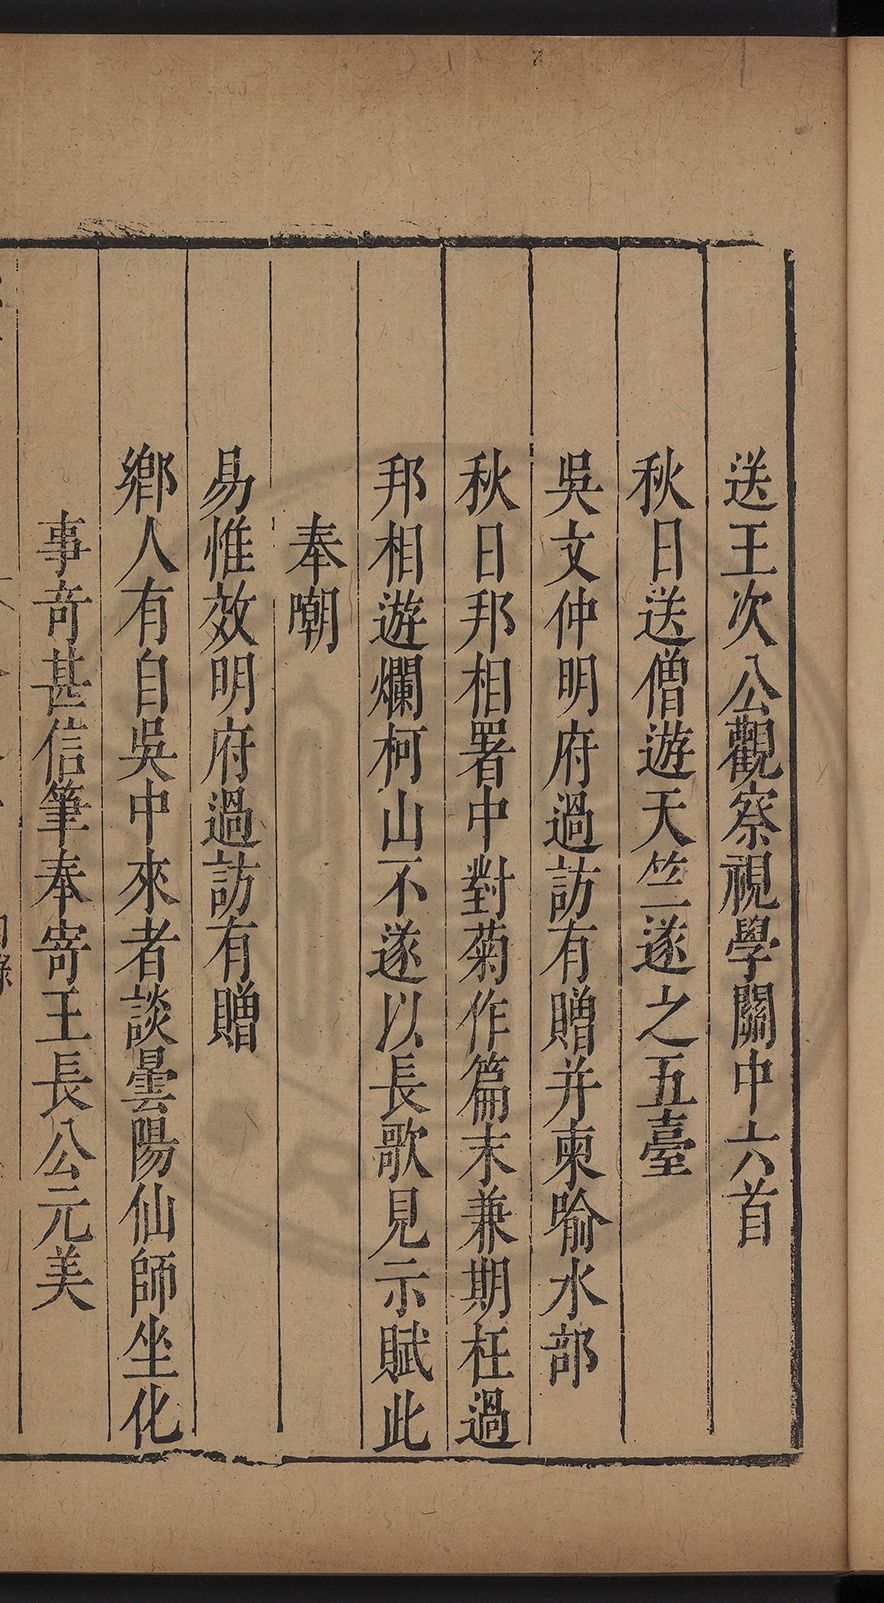 送王次公觀察視學關中六首
秋日送僧遊天竺遂之五臺
吳文仲明府過訪有贈并柬喻水部
秋日邦相署中對菊作篇末兼期枉過
邦相遊爛柯山不遂以長歌見示賦此
奉嘲
易惟效明府過訪有贈
鄉人有自吳中來者談曇陽仙師坐化
事奇甚信筆奉寄王長公元美